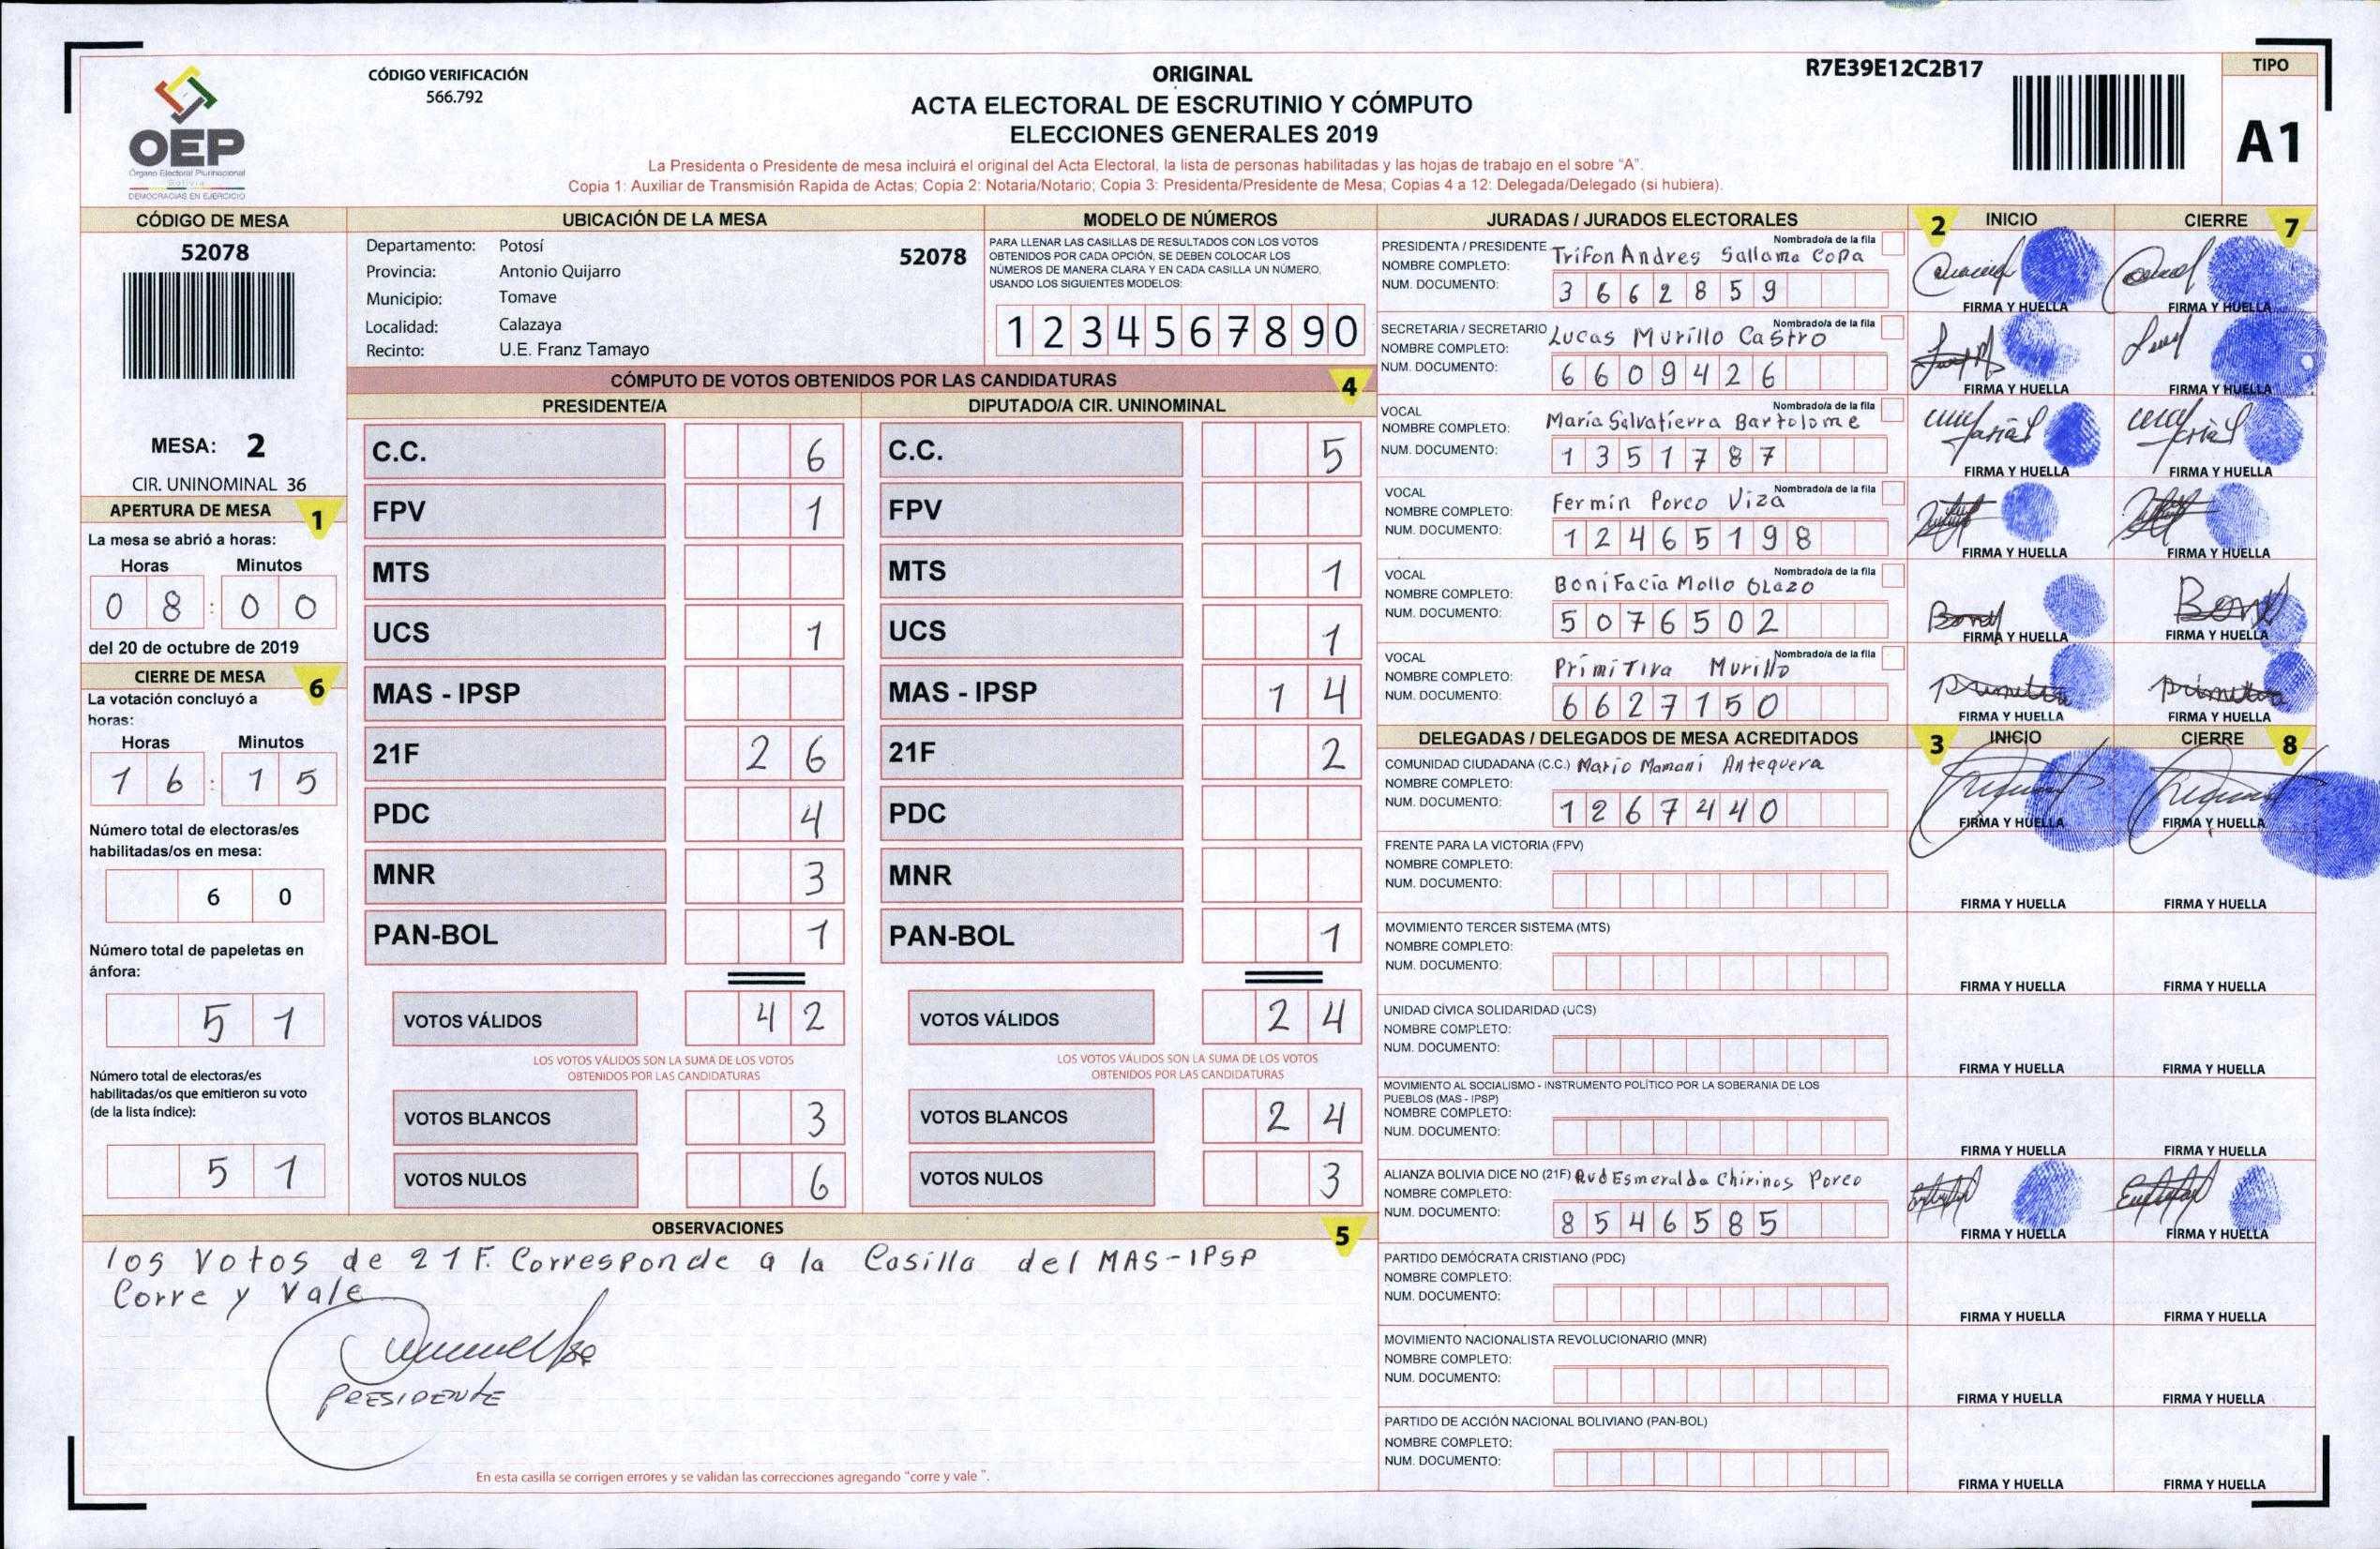 CÓDIGO VERIFICACIÓN
566.792
ORIGINAL
ACTA ELECTORAL DE ESCRUTINIO Y CÓMPUTO
ELECCIONES GENERALES 2019
La Presidenta o Presidente de mesa incluirá el original del Acta Electoral, la lista de personas habilitadas y las hojas de trabajo en el sobre "A".
Copia 1: Auxiliar de Transmisión Rapida de Actas; Copia 2: Notaria/Notario; Copia 3: Presidenta/Presidente de Mesa; Copias 4 a 12: Delegada/Delegado (si hubiera).
R7E39E12C2B17
TIPO
A1
OEP
Órgano Electoral Plurinacional
Bolivia
DEMOCRACIAS EN EJERCICIO
CÓDIGO DE MESA
52078
MESA: 2
CIR. UNINOMINAL 36
APERTURA DE MESA 1
La mesa se abrió a horas:
Horas Minutos
0 8 : 0 0
del 20 de octubre de 2019
CIERRE DE MESA 6
La votación concluyó a
horas:
Horas Minutos
1 6 : 1 5
Número total de electoras/es
habilitadas/os en mesa:
6 0
Número total de papeletas en
ánfora:
5 1
Número total de electoras/es
habilitadas/os que emitieron su voto
(de la lista índice):
5 1
UBICACIÓN DE LA MESA
Departamento: Potosí 52078
Provincia: Antonio Quijarro
Municipio: Tomave
Localidad: Calazaya
Recinto: U.E. Franz Tamayo
MODELO DE NÚMEROS
PARA LLENAR LAS CASILLAS DE RESULTADOS CON LOS VOTOS
OBTENIDOS POR CADA OPCIÓN, SE DEBEN COLOCAR LOS
NÚMEROS DE MANERA CLARA Y EN CADA CASILLA UN NÚMERO,
USANDO LOS SIGUIENTES MODELOS:
1 2 3 4 5 6 7 8 9 0
CÓMPUTO DE VOTOS OBTENIDOS POR LAS CANDIDATURAS 4
PRESIDENTE/A
C.C. 6
FPV 1
MTS
UCS 1
MAS - IPSP
21F 2 6
PDC 4
MNR 3
PAN-BOL 1
VOTOS VÁLIDOS 4 2
LOS VOTOS VÁLIDOS SON LA SUMA DE LOS VOTOS
OBTENIDOS POR LAS CANDIDATURAS
VOTOS BLANCOS 3
VOTOS NULOS 6
DIPUTADO/A CIR. UNINOMINAL
C.C. 5
FPV
MTS 1
UCS 1
MAS - IPSP 1 4
21F 2
PDC
MNR
PAN-BOL 1
VOTOS VÁLIDOS 2 4
LOS VOTOS VÁLIDOS SON LA SUMA DE LOS VOTOS
OBTENIDOS POR LAS CANDIDATURAS
VOTOS BLANCOS 2 4
VOTOS NULOS 3
OBSERVACIONES 5
los Votos de 21F. Corresponde a la Casilla del MAS-IPSP
Corre y Vale
PRESIDENTE
En esta casilla se corrigen errores y se validan las correcciones agregando "corre y vale ".
JURADAS / JURADOS ELECTORALES 2 INICIO CIERRE 7
PRESIDENTA / PRESIDENTE Nombrado/a de la fila
NOMBRE COMPLETO: Trifon Andres Sallama Copa
NUM. DOCUMENTO: 3 6 6 2 8 5 9
FIRMA Y HUELLA FIRMA Y HUELLA
SECRETARIA / SECRETARIO Nombrado/a de la fila
NOMBRE COMPLETO: Lucas Murillo Castro
NUM. DOCUMENTO: 6 6 0 9 4 2 6
FIRMA Y HUELLA FIRMA Y HUELLA
VOCAL Nombrado/a de la fila
NOMBRE COMPLETO: María Salvatierra Bartolome
NUM. DOCUMENTO: 1 3 5 1 7 8 7
FIRMA Y HUELLA FIRMA Y HUELLA
VOCAL Nombrado/a de la fila
NOMBRE COMPLETO: Fermin Porco Viza
NUM. DOCUMENTO: 1 2 4 6 5 1 9 8
FIRMA Y HUELLA FIRMA Y HUELLA
VOCAL Nombrado/a de la fila
NOMBRE COMPLETO: Bonifacia Mollo Olazo
NUM. DOCUMENTO: 5 0 7 6 5 0 2
FIRMA Y HUELLA FIRMA Y HUELLA
VOCAL Nombrado/a de la fila
NOMBRE COMPLETO: Primitiva Murillo
NUM. DOCUMENTO: 6 6 2 7 1 5 0
FIRMA Y HUELLA FIRMA Y HUELLA
DELEGADAS / DELEGADOS DE MESA ACREDITADOS 3 INICIO CIERRE 8
COMUNIDAD CIUDADANA (C.C.) Mario Mamani Antequera
NOMBRE COMPLETO:
NUM. DOCUMENTO: 1 2 6 7 4 4 0
FIRMA Y HUELLA FIRMA Y HUELLA
FRENTE PARA LA VICTORIA (FPV)
NOMBRE COMPLETO:
NUM. DOCUMENTO:
FIRMA Y HUELLA FIRMA Y HUELLA
MOVIMIENTO TERCER SISTEMA (MTS)
NOMBRE COMPLETO:
NUM. DOCUMENTO:
FIRMA Y HUELLA FIRMA Y HUELLA
UNIDAD CÍVICA SOLIDARIDAD (UCS)
NOMBRE COMPLETO:
NUM. DOCUMENTO:
FIRMA Y HUELLA FIRMA Y HUELLA
MOVIMIENTO AL SOCIALISMO - INSTRUMENTO POLÍTICO POR LA SOBERANIA DE LOS
PUEBLOS (MAS - IPSP)
NOMBRE COMPLETO:
NUM. DOCUMENTO:
FIRMA Y HUELLA FIRMA Y HUELLA
ALIANZA BOLIVIA DICE NO (21F) Rud Esmeralda Chirinos Porco
NOMBRE COMPLETO:
NUM. DOCUMENTO: 8 5 4 6 5 8 5
FIRMA Y HUELLA FIRMA Y HUELLA
PARTIDO DEMÓCRATA CRISTIANO (PDC)
NOMBRE COMPLETO:
NUM. DOCUMENTO:
FIRMA Y HUELLA FIRMA Y HUELLA
MOVIMIENTO NACIONALISTA REVOLUCIONARIO (MNR)
NOMBRE COMPLETO:
NUM. DOCUMENTO:
FIRMA Y HUELLA FIRMA Y HUELLA
PARTIDO DE ACCIÓN NACIONAL BOLIVIANO (PAN-BOL)
NOMBRE COMPLETO:
NUM. DOCUMENTO:
FIRMA Y HUELLA FIRMA Y HUELLA